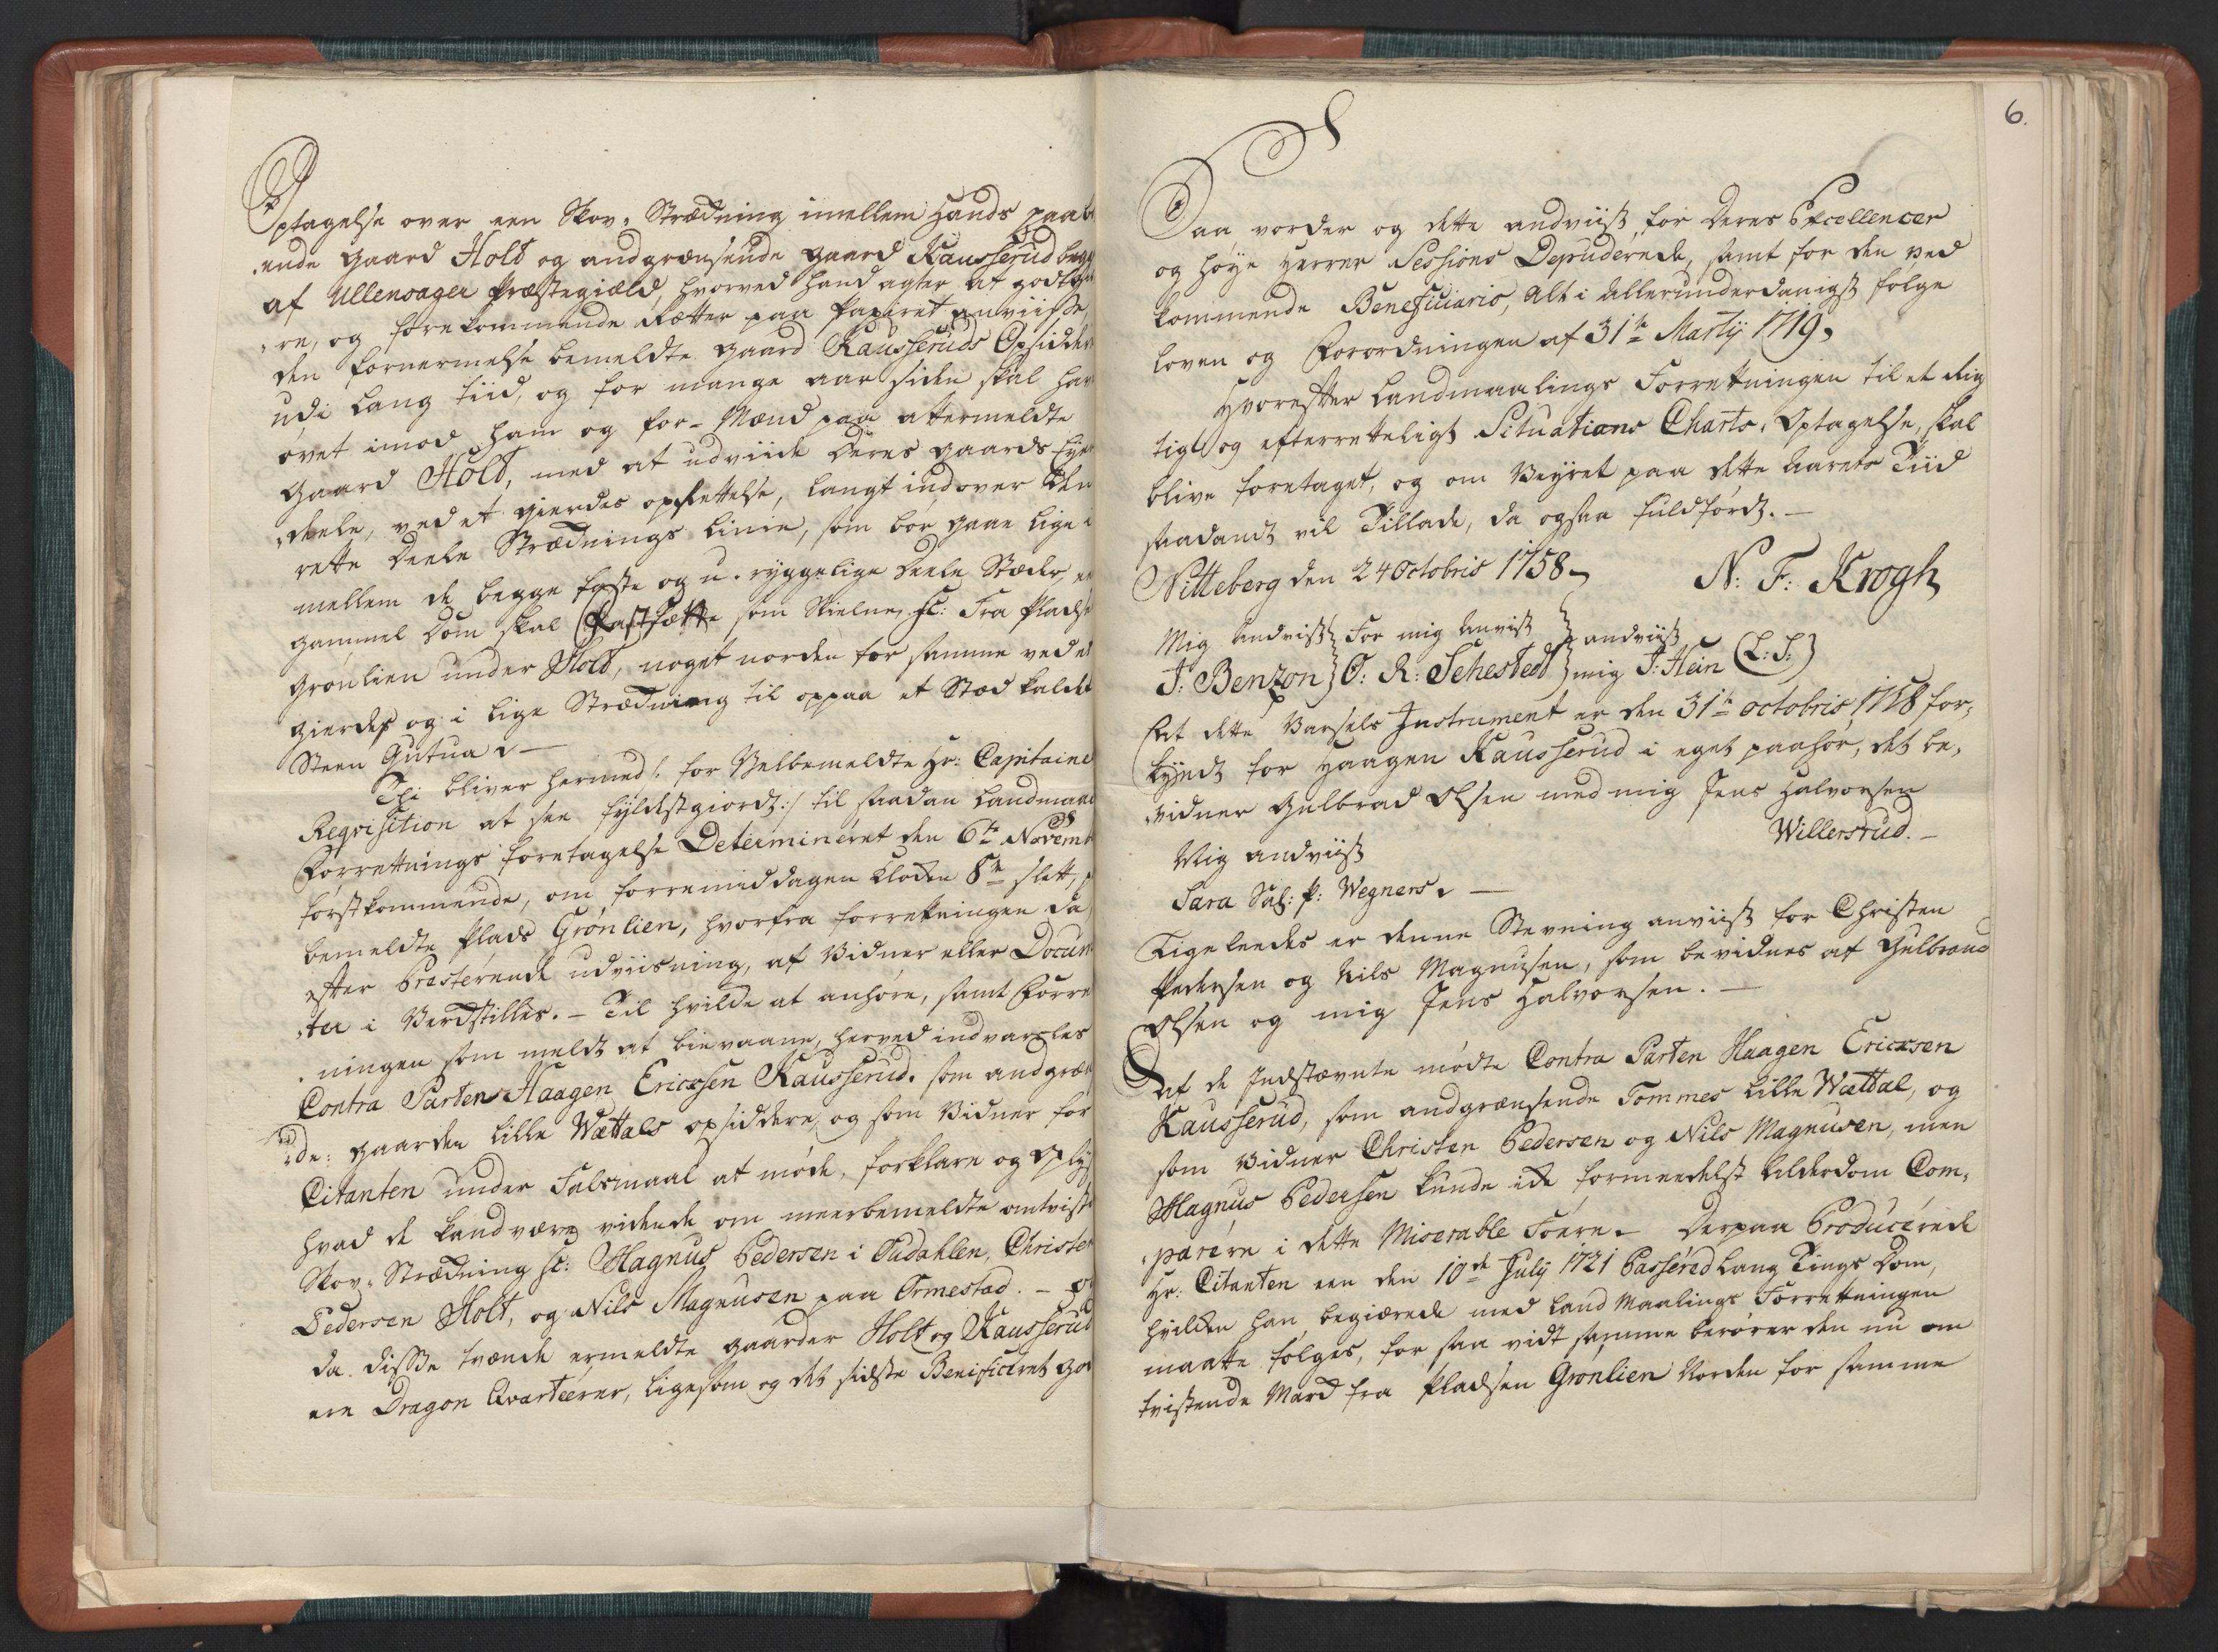 Optagelse over een Skov-Strædning imellem Hands paabo
ende Gaard Holt og andgrændsende Gaard Kausserud begge
af Ullensager Præstegiæld, hvorved Hand agter at godtgiø
re, og forekommende Rætter paa Papiret anviisse
den Fornærmelse bemeldte Gaard Kausseruds Opsiddere
udi Lang Tiid, og for mange aar siden skal hav
øvet imod ham og for-Mænd paa attermeldte
Gaard Holt, med at udviide Deres Gaards Eyen
deele, ved et gierdes oprettelse, langt indover den
rette Deele Strædnings Linie, som bør gaae lige i
mellem de begge faste og u-ryggelige Deele Stæder, en
gammel Dom skal Fastsætte som Skielne, sc: Fra Pladse
Grønlien under Holt, noget norden for samme ved et
gierde og i lige Strædning til oppaa et Stæd kaldet
Steen Gutua. —
Thi bliver hermed /: for Velbemeldte Hr: Capitaine
Reqvisition at see fyldestgiordt :/ til saadan Landmaal
Forretnings foretagelse Determineret den 6te Novemb
førstkommende, om formiddagen Klokken 8te slett, p
bemeldte Plads Grønlien, hvorfra forretningen da
efter Præsterende udviisning, af Vidner eller Docum
ter i Værdstilles. - Til hvilke at anhøre, samt Forre
ningen som meldt at bievaane, herved indvarsles
Contra Parten Haagen Ericksen Kausserud. som andgræn
de: Gaarden Lille Wættals opsiddere, og som Vidner for
Citanten under Falsmaal at møde, forklare og oplys
hvad de kand være vidende om meerbemeldte omtvist
Skov-Strædning sc: Magnus Pedersen i Dudahlen, Christen
Pedersen Holt, og Nils Magnusen paa Ormestad. - og
da disse tvende ermeldte gaarder Holt og Kausserud
ere Dragon Qvarteerer, ligesom og det sidste Beneficeret God
6.
Saa vorder og dette andviist for Deres Excellencer
og høye Herrer Sessions Deputerede, samt for den ved
kommende Beneficiario, Alt i Allerunderdanigst følge
loven og Forordningen af 31te Martij 1719.
Hvorefter Landmaalings Forretningen til et rig
tigt og efterretteligt Situations Charts-Optagelse, skal
blive foretaget, og om Veyret paa dette Aarets Tiid
saadant vil Tillade, da ogsaa fuldført. —
Nitteberg den 24 Octobris 1758.
N: F: Krogh
Mig Andvist } For mig Anvist } andviist
J: Benzon } O: R: Sehested } mig J: Hein (L: S:)
At dette Varsels Instrument er den 31te octobris 1758 for-
kyndt for Haagen Kausserud i eget paahør, det be-
vidner Gulbrad Olsen med mig Jens Halvorsen
Willersrud. —
Mig andviist
Sara Sal: P: Wegners. —
Ligeleedes er denne Stevning anviist for Christen
Pedersen og Nils Magnusen, som bevidnes af Gulbrand
Olsen og mig Jens Halvorsen. —
Af de Indstævnte mødte Contra Parten Haagen Ericksen
Kausserud, som andgrændsende Tommes Lille Wættal, og
som Vidner Christen Pedersen og Nils Magnusen, men
Magnus Pedersen kunde icke formeedelst Alderdom Com-
parere i dette Miserable Føere. - Derpaa Producerede
Hr. Citanten een den 10de July 1721 Passered Lang Tings Dom,
hvilken han begiærede med Land Maalings Forretningen
maatte følges, for saa vidt samme berører den nu om
tvistende Mard fra Pladsen Grønlien Norden for samme